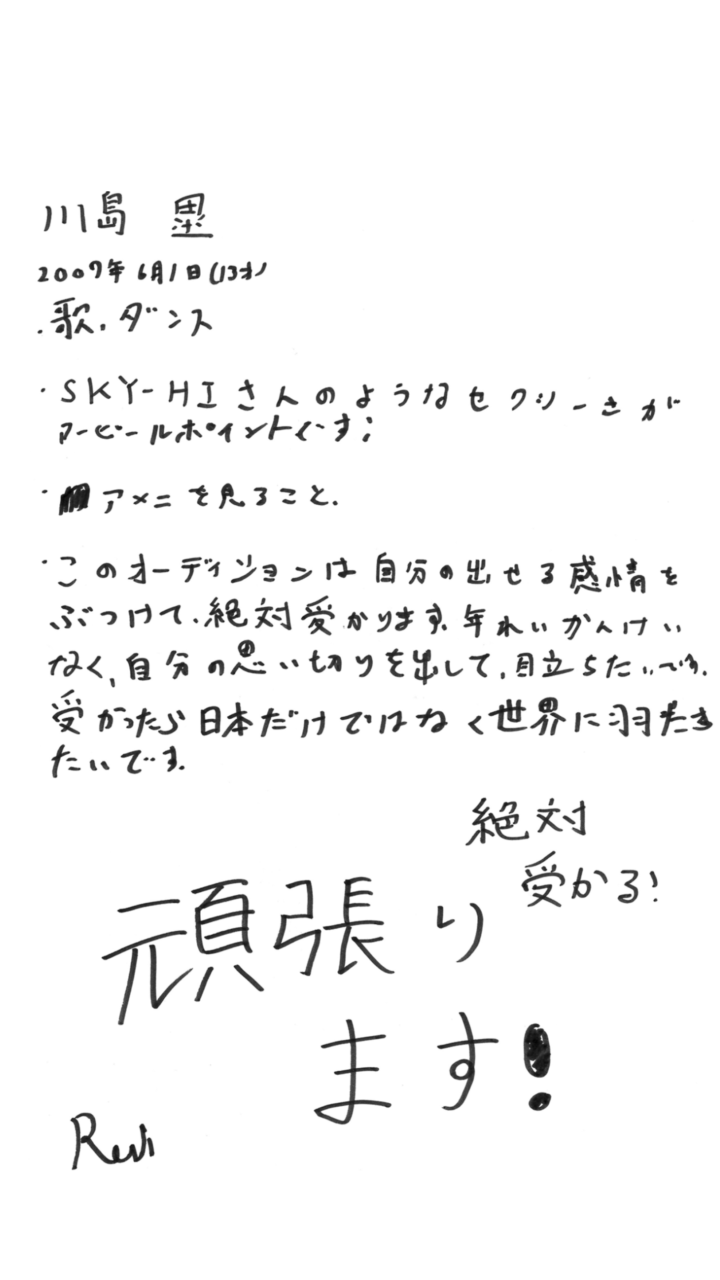 川島 塁
2007年6月1日(13才)
・歌、ダンス
・SKY-HIさんのようなセクシーさが
アーピールポイントです!
・アメニを見ること.
・このオーディションは自分の出せる感情を
ぶつけて、絶対受かります。年れいかんけい
なく、自分の思い切りを出して、目立ちたいです。
受かったら日本だけではなく世界に羽たき
たいです。
絶対
受かる!
頑張り
ます!